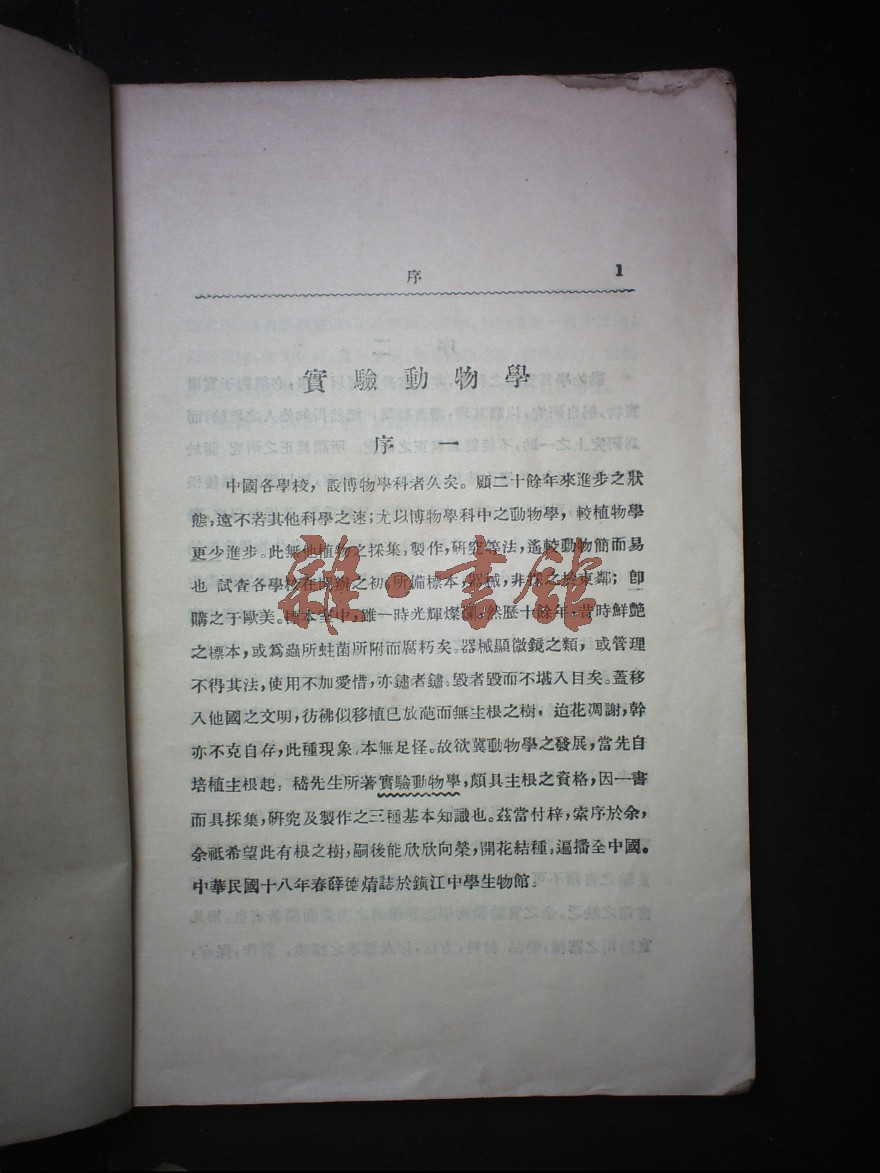 序 1
實驗動物學
序一
中國各學校，設博物學科者久矣。顧二十餘年來進步之狀
態，遠不若其他科學之速；尤以博物學科中之動物學，較植物學
更少進步。此無他植物之採集，製作，研究等法，遙較動物簡而易
也 試查各學校在開辦之初，所備標本，器械，非採之於東鄰；卽
購之于歐美。標本室中，雖一時光輝燦爛，然歷十餘年，昔時鮮艷
之標本，或爲蟲所蛀菌所附而腐朽矣。器械顯微鏡之類，或管理
不得其法，使用不加愛惜，亦鏽者鏽，毀者毀而不堪入目矣。蓋移
入他國之文明，彷彿似移植已放葩而無主根之樹，迨花凋謝，幹
亦不克自存，此種現象，本無足怪。故欲冀動物學之發展，當先自
培植主根起；嵇先生所著實驗動物學，頗具主根之資格，因一書
而具採集，研究及製作之三種基本知識也。茲當付梓，索序於余，
余祗希望此有根之樹，嗣後能欣欣向榮，開花結種，遍播全中國。
中華民國十八年春薛德焴誌於鎮江中學生物館。
雜·書館